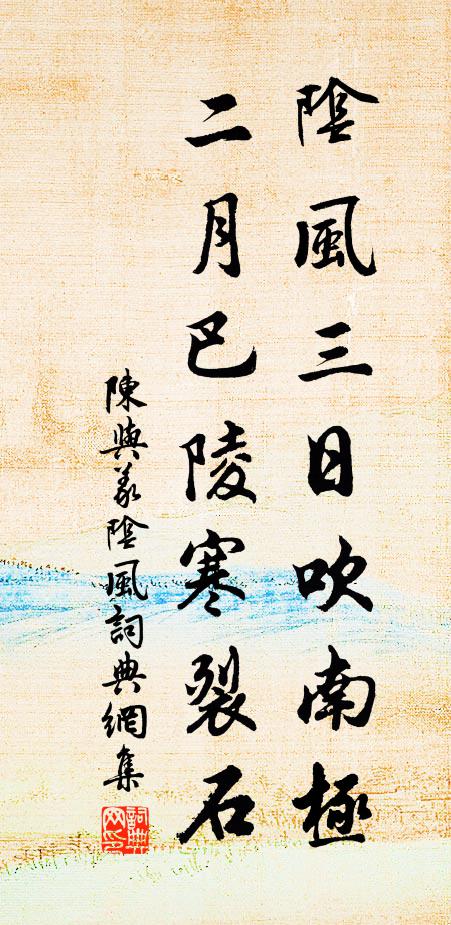 陰風三日吹南極
二月巴陵寒裂石
陳與義陰風詞典網集
詞典网印